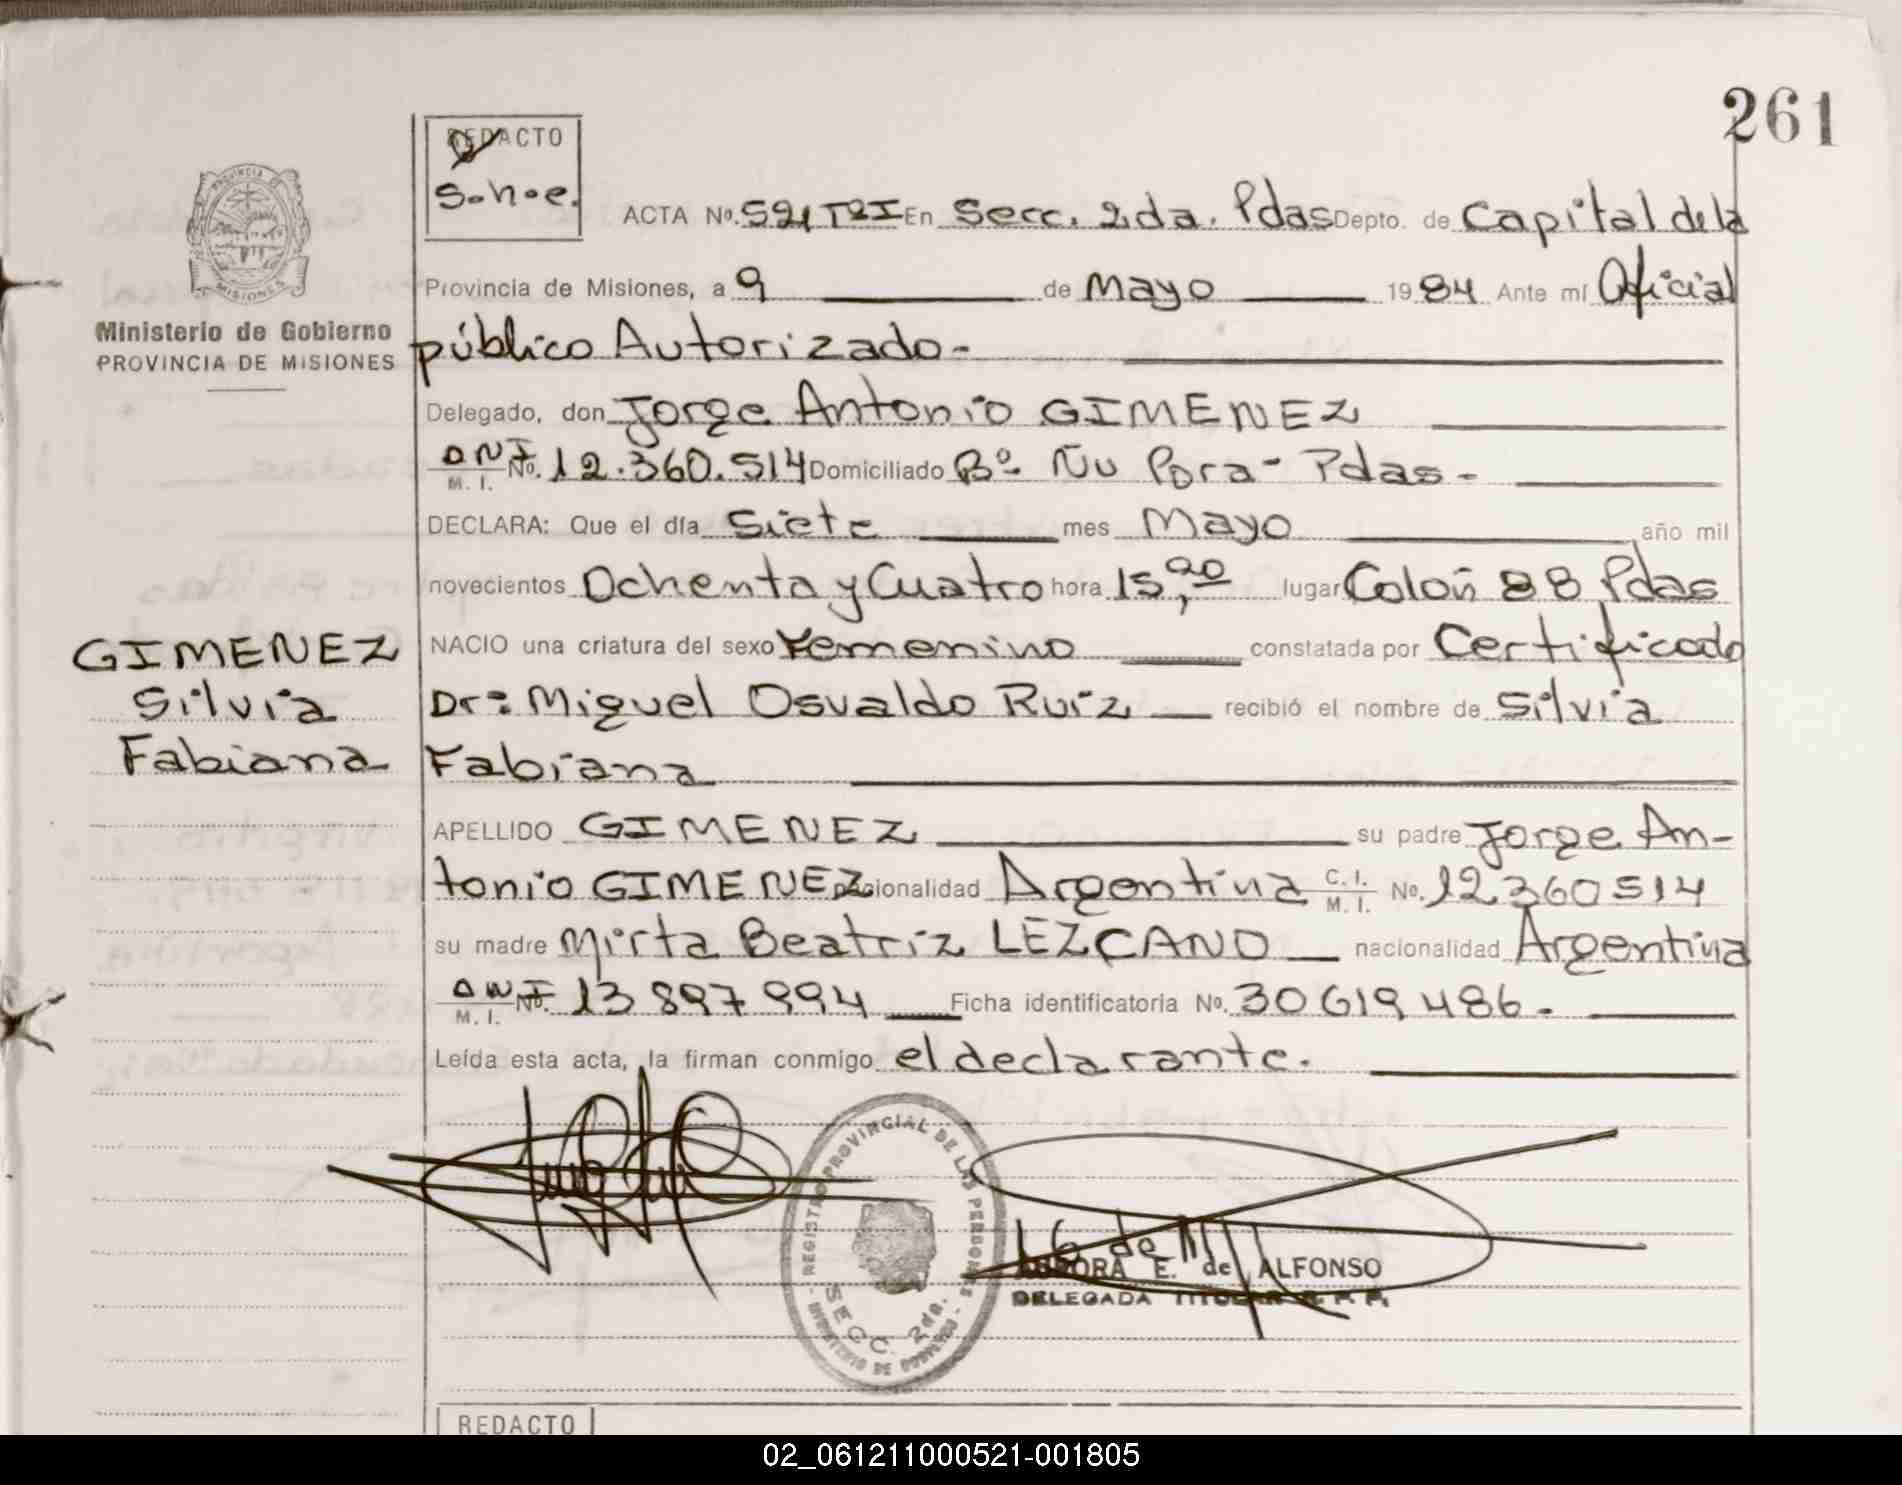 261
REDACTO
S.h.e.
ACTA Nº. 521 TºI En Secc. 2da. Pdas Depto. de Capital de la
Provincia de Misiones, a 9 de Mayo 1984 Ante mí Oficial
público Autorizado-
PROVINCIA DE
MISIONES
Ministerio de Gobierno
PROVINCIA DE MISIONES
Delegado, don Jorge Antonio GIMENEZ
DNI M. I. Nº. 12.360.514 Domiciliado Bº Ñu Pora - Pdas -
DECLARA: Que el día Siete mes Mayo año mil
novecientos Ochenta y Cuatro hora 15, lugar Colon 88 Pdas
NACIO una criatura del sexo Femenino constatada por Certificado
Dr: Miguel Osvaldo Ruiz recibió el nombre de Silvia
Fabiana
GIMENEZ
Silvia
Fabiana
APELLIDO GIMENEZ su padre Jorge An-
tonio GIMENEZ nacionalidad Argentina C. I. M. I. Nº. 12360514
su madre Mirta Beatriz LEZCANO nacionalidad Argentina
DNI M. I. Nº. 13897994 Ficha identificatoria Nº. 30619486.
Leída esta acta, la firman conmigo el declarante.
REGISTRO PROVINCIAL DE LAS PERSONAS
SECC. 2da.
MINISTERIO DE GOBIERNO
AURORA E. de ALFONSO
DELEGADA TITULAR R. P. P.
REDACTO
02_061211000521-001805